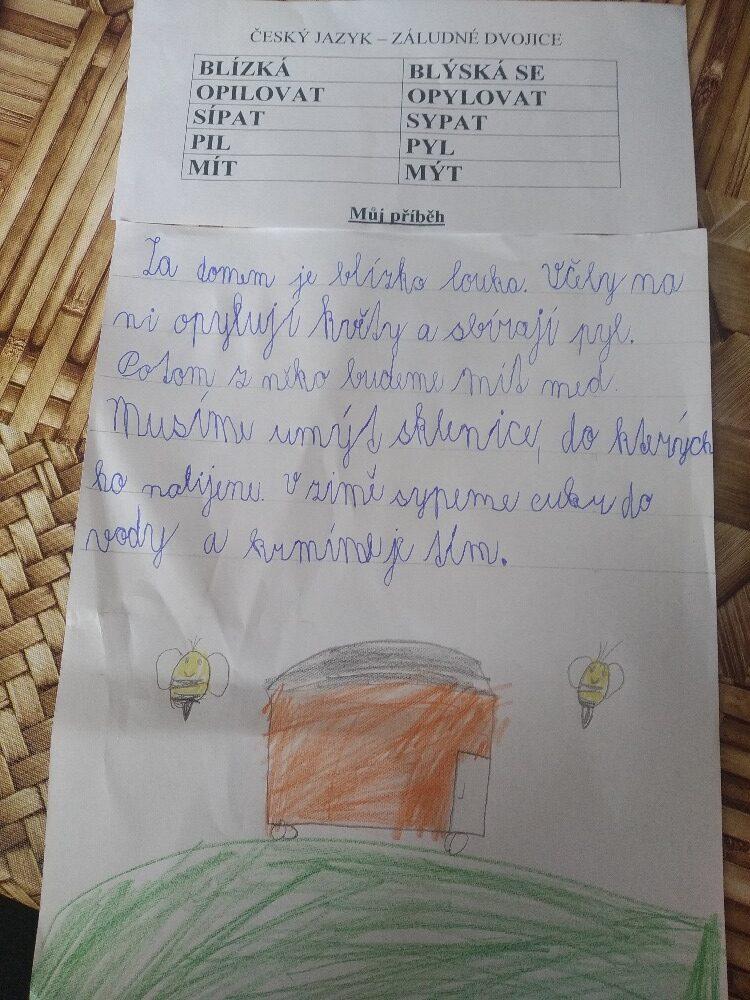 ČESKÝ JAZYK – ZÁLUDNÉ DVOJICE
BLÍZKÁ BLÝSKÁ SE
OPILOVAT OPYLOVAT
SÍPAT SYPAT
PIL PYL
MÍT MÝT
Můj příběh
Za domem je blízko louka. Včely na
ni opylují květy a sbírají pyl.
Potom z něho budeme mít med.
Musíme umýt sklenice, do kterých
ho nalijeme. V zimě sypeme cukr do
vody a krmíme je tím.